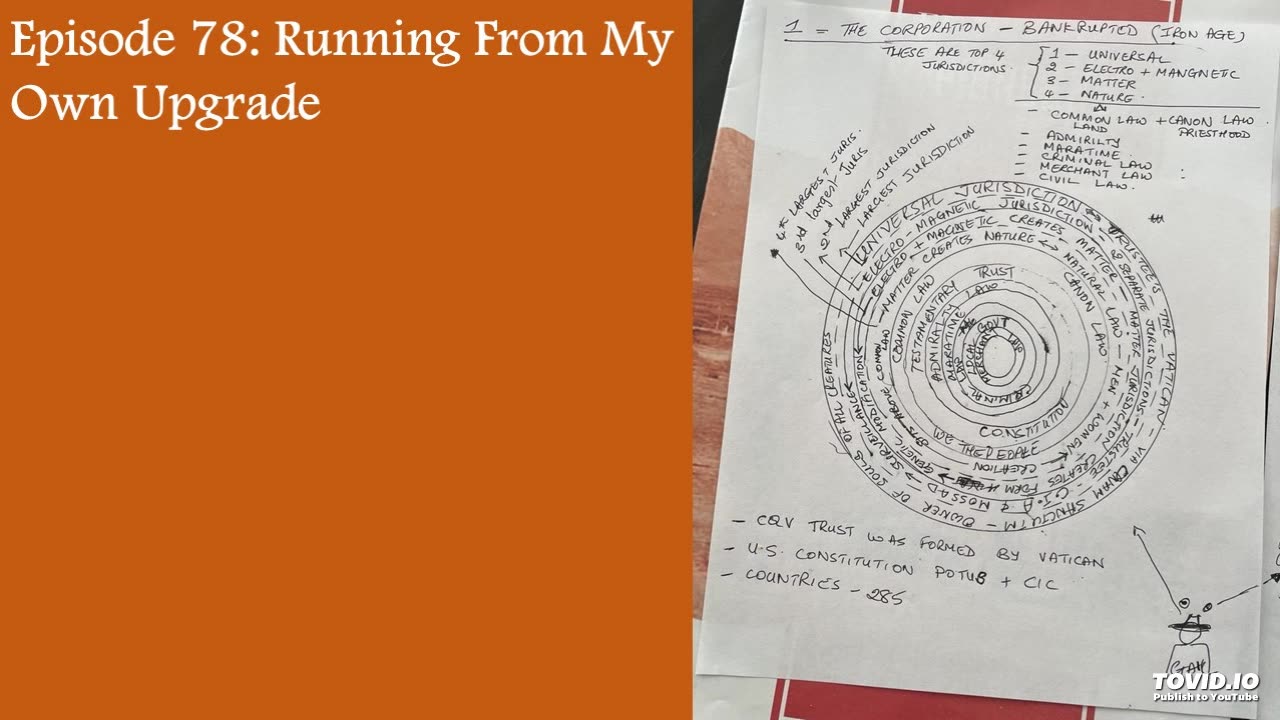 Episode 78: Running From My
Own Upgrade
1 = THE CORPORATION - BANKRUPTED (IRON AGE)
THESE ARE TOP 4
JURISDICTIONS.
1 - UNIVERSAL
2 - ELECTRO + MANGNETIC
3 - MATTER
4 - NATURE.
- COMMON LAW + CANON LAW.
LAND PRIESTHOOD
- ADMIRILTY
- MARATIME.
- CRIMINAL LAW
- MERCHANT LAW :
- CIVIL LAW.
4th LARGEST JURIS.
3rd largest JURIS
2nd LARGEST JURISDICTION
LARGEST JURISDICTION
UNIVERSAL JURISDICTION
TRUSTEE'S THE VATICAN - VIA
SANCTUTM - OWNER OF SOULS OF ALL CREATURES
ELECTRO-MAGNETIC JURISDICTION - 2 SEPARATE JURISDICTIONS - TRUSTEE
C.I.A & MOSSAD
SURVEILLANCE
ELECTRO + MAGNETIC CREATES MATTER - MATTER JURISDICTION CREATES FORM
GENETIC MODIFICATION
MATTER CREATES NATURE NATURAL LAW - MEN + WOMEN
CREATION
ABOVE COMMON LAW
COMMON LAW
CANON LAW
WE THE PEOPLE
TESTAMENTARY TRUST
CONSTITUTION
ADMIRALTY LAW
MARATIME LAW
CRIMINAL
LOCAL GOVT
MERCHANT LAW
- CQV TRUST WAS FORMED BY VATICAN
- U.S. CONSTITUTION POTUS + CIC
- COUNTRIES - 285
TOVID.IO
Publish to YouTube